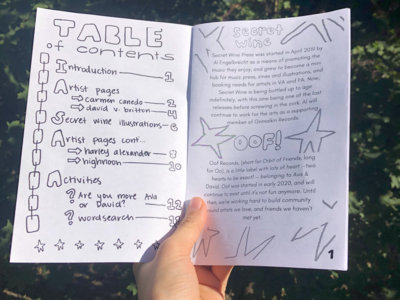 TABLE
of contents
Introduction 1
Artist pages
carmen canedo 2
david v. britton 4
Secret wine illustrations 6
Artist pages cont..
harley alexander 8
highnoon 10
Activities
? Are you more Avia
or David? 12
? wordsearch 18
secret
wine
Secret Wine Press was started in April 2019 by
Al Engelbrecht as a means of promoting the
music they enjoy, and grew to become a mini
hub for music press, zines and illustrations, and
booking needs for artists in VA and PA. Now,
Secret Wine is being bottled up to age
indefinitely, with this zine being one of the last
releases before screwing in the cork. Al will
continue to work for the arts as a supporting
member of
OOF!
Oof Records, (short for Orbit of Friends, long
for Oo), is a little label with lots of heart -- two
hearts to be exact! -- belonging to Avia &
David. Oof was started in early 2020, and will
continue to exist until it's not fun anymore. Until
then, we're working hard to build community
around artists we love, and friends we haven't
met yet.
1